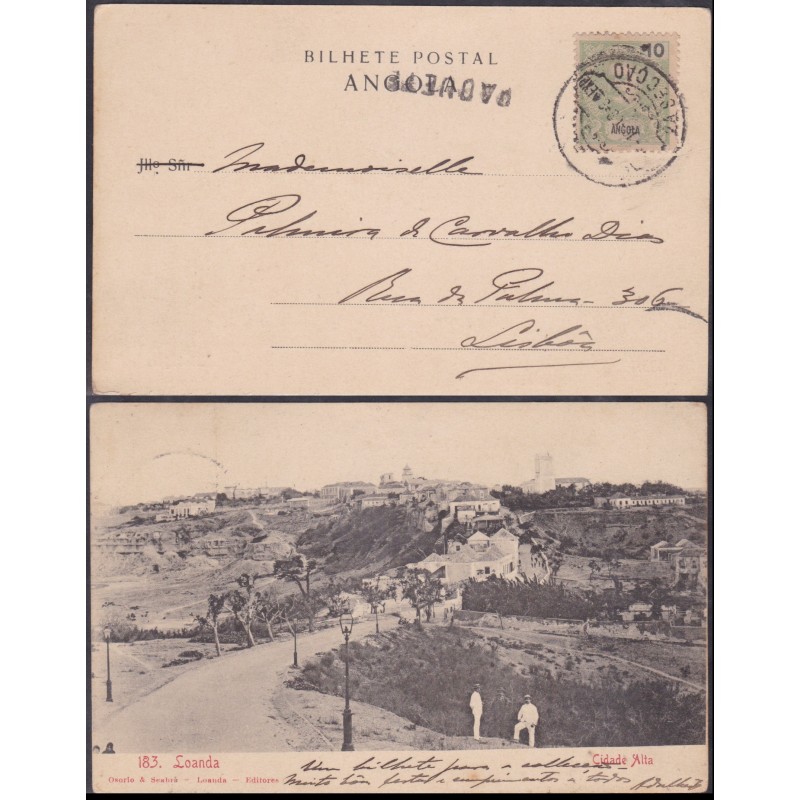 BILHETE POSTAL
ANGOLA
PAQUETE
10
ANGOLA
SECCAO
Illº Sñr Mademoiselle
Palmira de Carvalho Dias
Rua da Palma - 306
Lisbôa
183. Loanda Cidade Alta
Osorio & Seabra - Loanda - Editores
Um bilhete para a collecção
Muito bôas festas e cumprimentos a todos